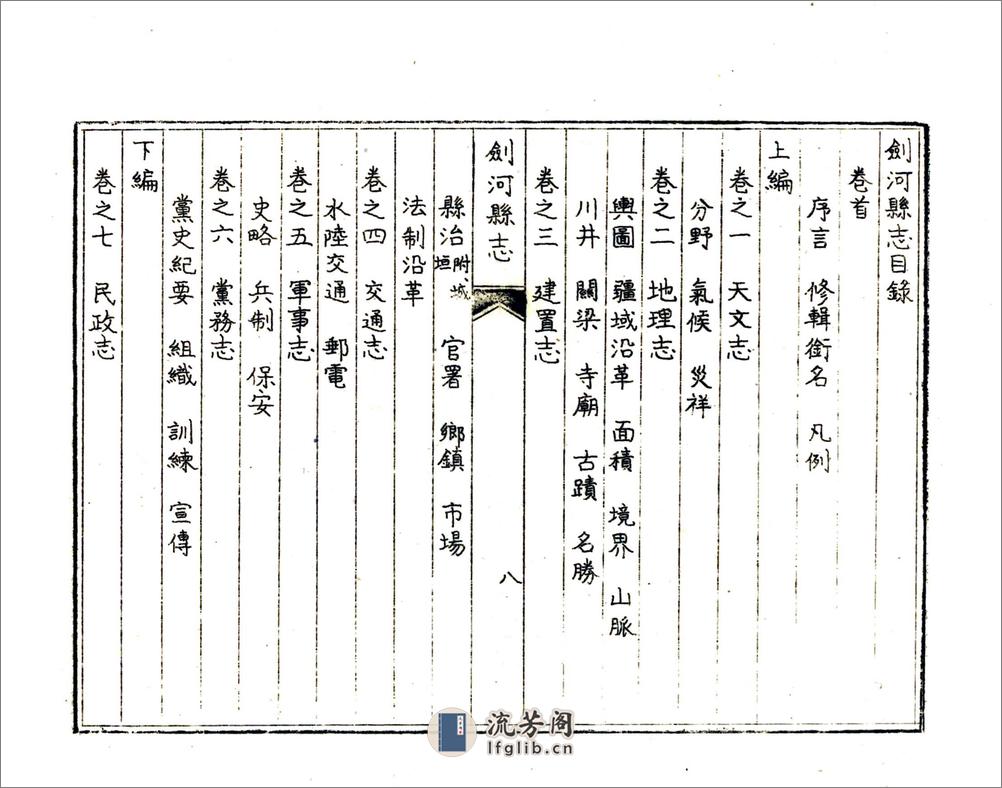 劍河縣志目錄
卷首
序言 修輯銜名 凡例
上編
卷之一 天文志
分野 氣候 災祥
卷之二 地理志
輿圖 疆域沿革 面積 境界 山脈
川井 關梁 寺廟 古蹟 名勝
卷之三 建置志
劍河縣志 八
縣治附、城垣 官署 鄉鎮 市場
法制沿革
卷之四 交通志
水陸交通 郵電
卷之五 軍事志
史略 兵制 保安
卷之六 黨務志
黨史紀要 組織 訓練 宣傳
下編
卷之七 民政志
流芳阁
lfglib.cn